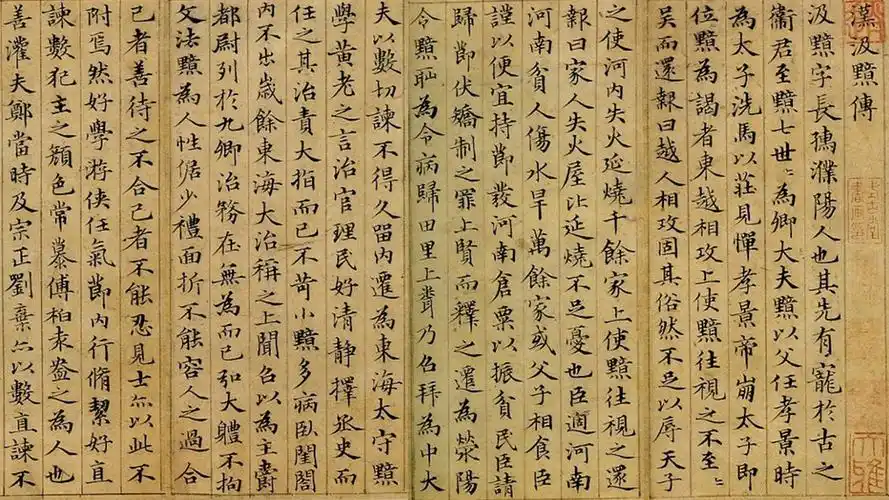 漢汲黯傳
汲黯字長孺濮陽人也其先有寵於古之
衛君至黯七世〻為卿大夫黯以父任孝景時
為太子洗馬以莊見憚孝景帝崩太子即
位黯為謁者東越相攻上使黯往視之不至〻
吳而還報曰越人相攻固其俗然不足以辱天子
之使河內失火延燒千餘家上使黯往視之還
報曰家人失火屋比延燒不足憂也臣適河南
河南貧人傷水旱萬餘家或父子相食臣
謹以便宜持節發河南倉粟以振貧民臣請
歸節伏矯制之罪上賢而釋之遷為滎陽
令黯恥為令病歸田里上聞乃召拜為中大
夫以數切諫不得久留內遷為東海太守黯
學黃老之言治官理民好清靜擇丞史而
任之其治責大指而已不苛小黯多病臥閨閤
內不出歲餘東海大治稱之上聞召以為主爵
都尉列於九卿治務在無為而已弘大體不拘
文法黯為人性倨少禮面折不能容人之過合
己者善待之不合己者不能忍見士亦以此不
附焉然好學游俠任氣節內行脩絜好直
諫數犯主之顏色常慕傅柏袁盎之為人也
善灌夫鄭當時及宗正劉棄亦以數直諫不